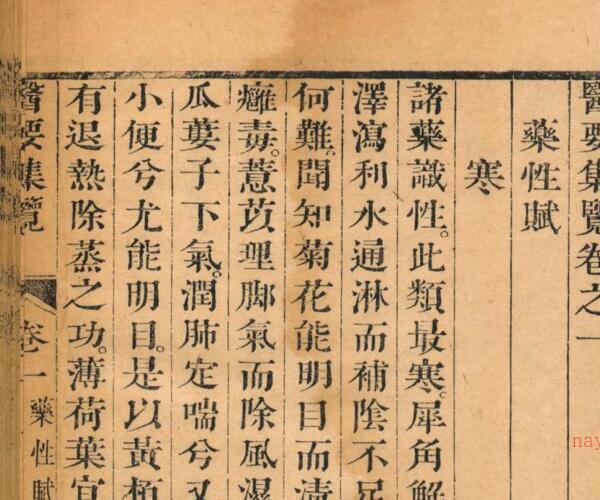 醫要集覽卷之一
藥性賦
寒
諸藥識性。此類最寒。犀角解
澤瀉利水通淋而補陰不足
何難。聞知菊花能明目而清
癰毒。薏苡理脚氣而除風濕
瓜蔞子下氣。潤肺定喘兮又
小便兮尤能明目。是以黃栢
有退熱除蒸之功。薄荷葉宜
醫要集覽 卷一 藥性賦
nay